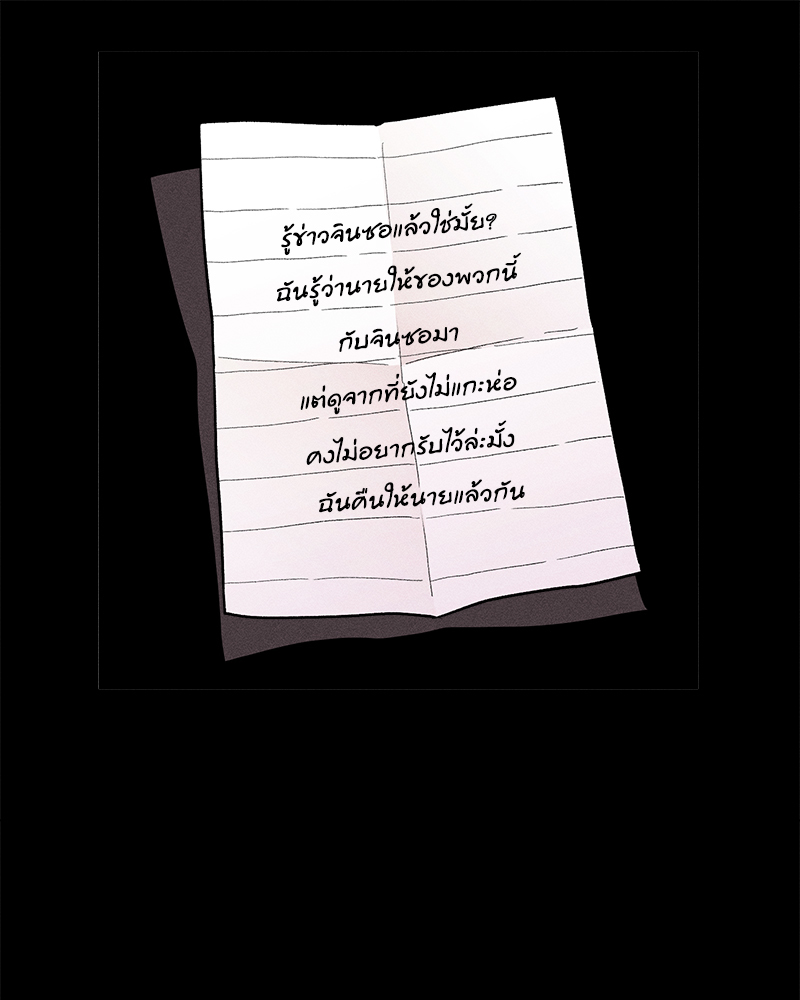 รู้ข่าวจินซอแล้วใช่มั้ย?
ฉันรู้ว่านายให้ของพวกนี้
กับจินซอมา
แต่ดูจากที่ยังไม่แกะห่อ
คงไม่อยากรับไว้ล่ะมั้ง
ฉันคืนให้นายแล้วกัน